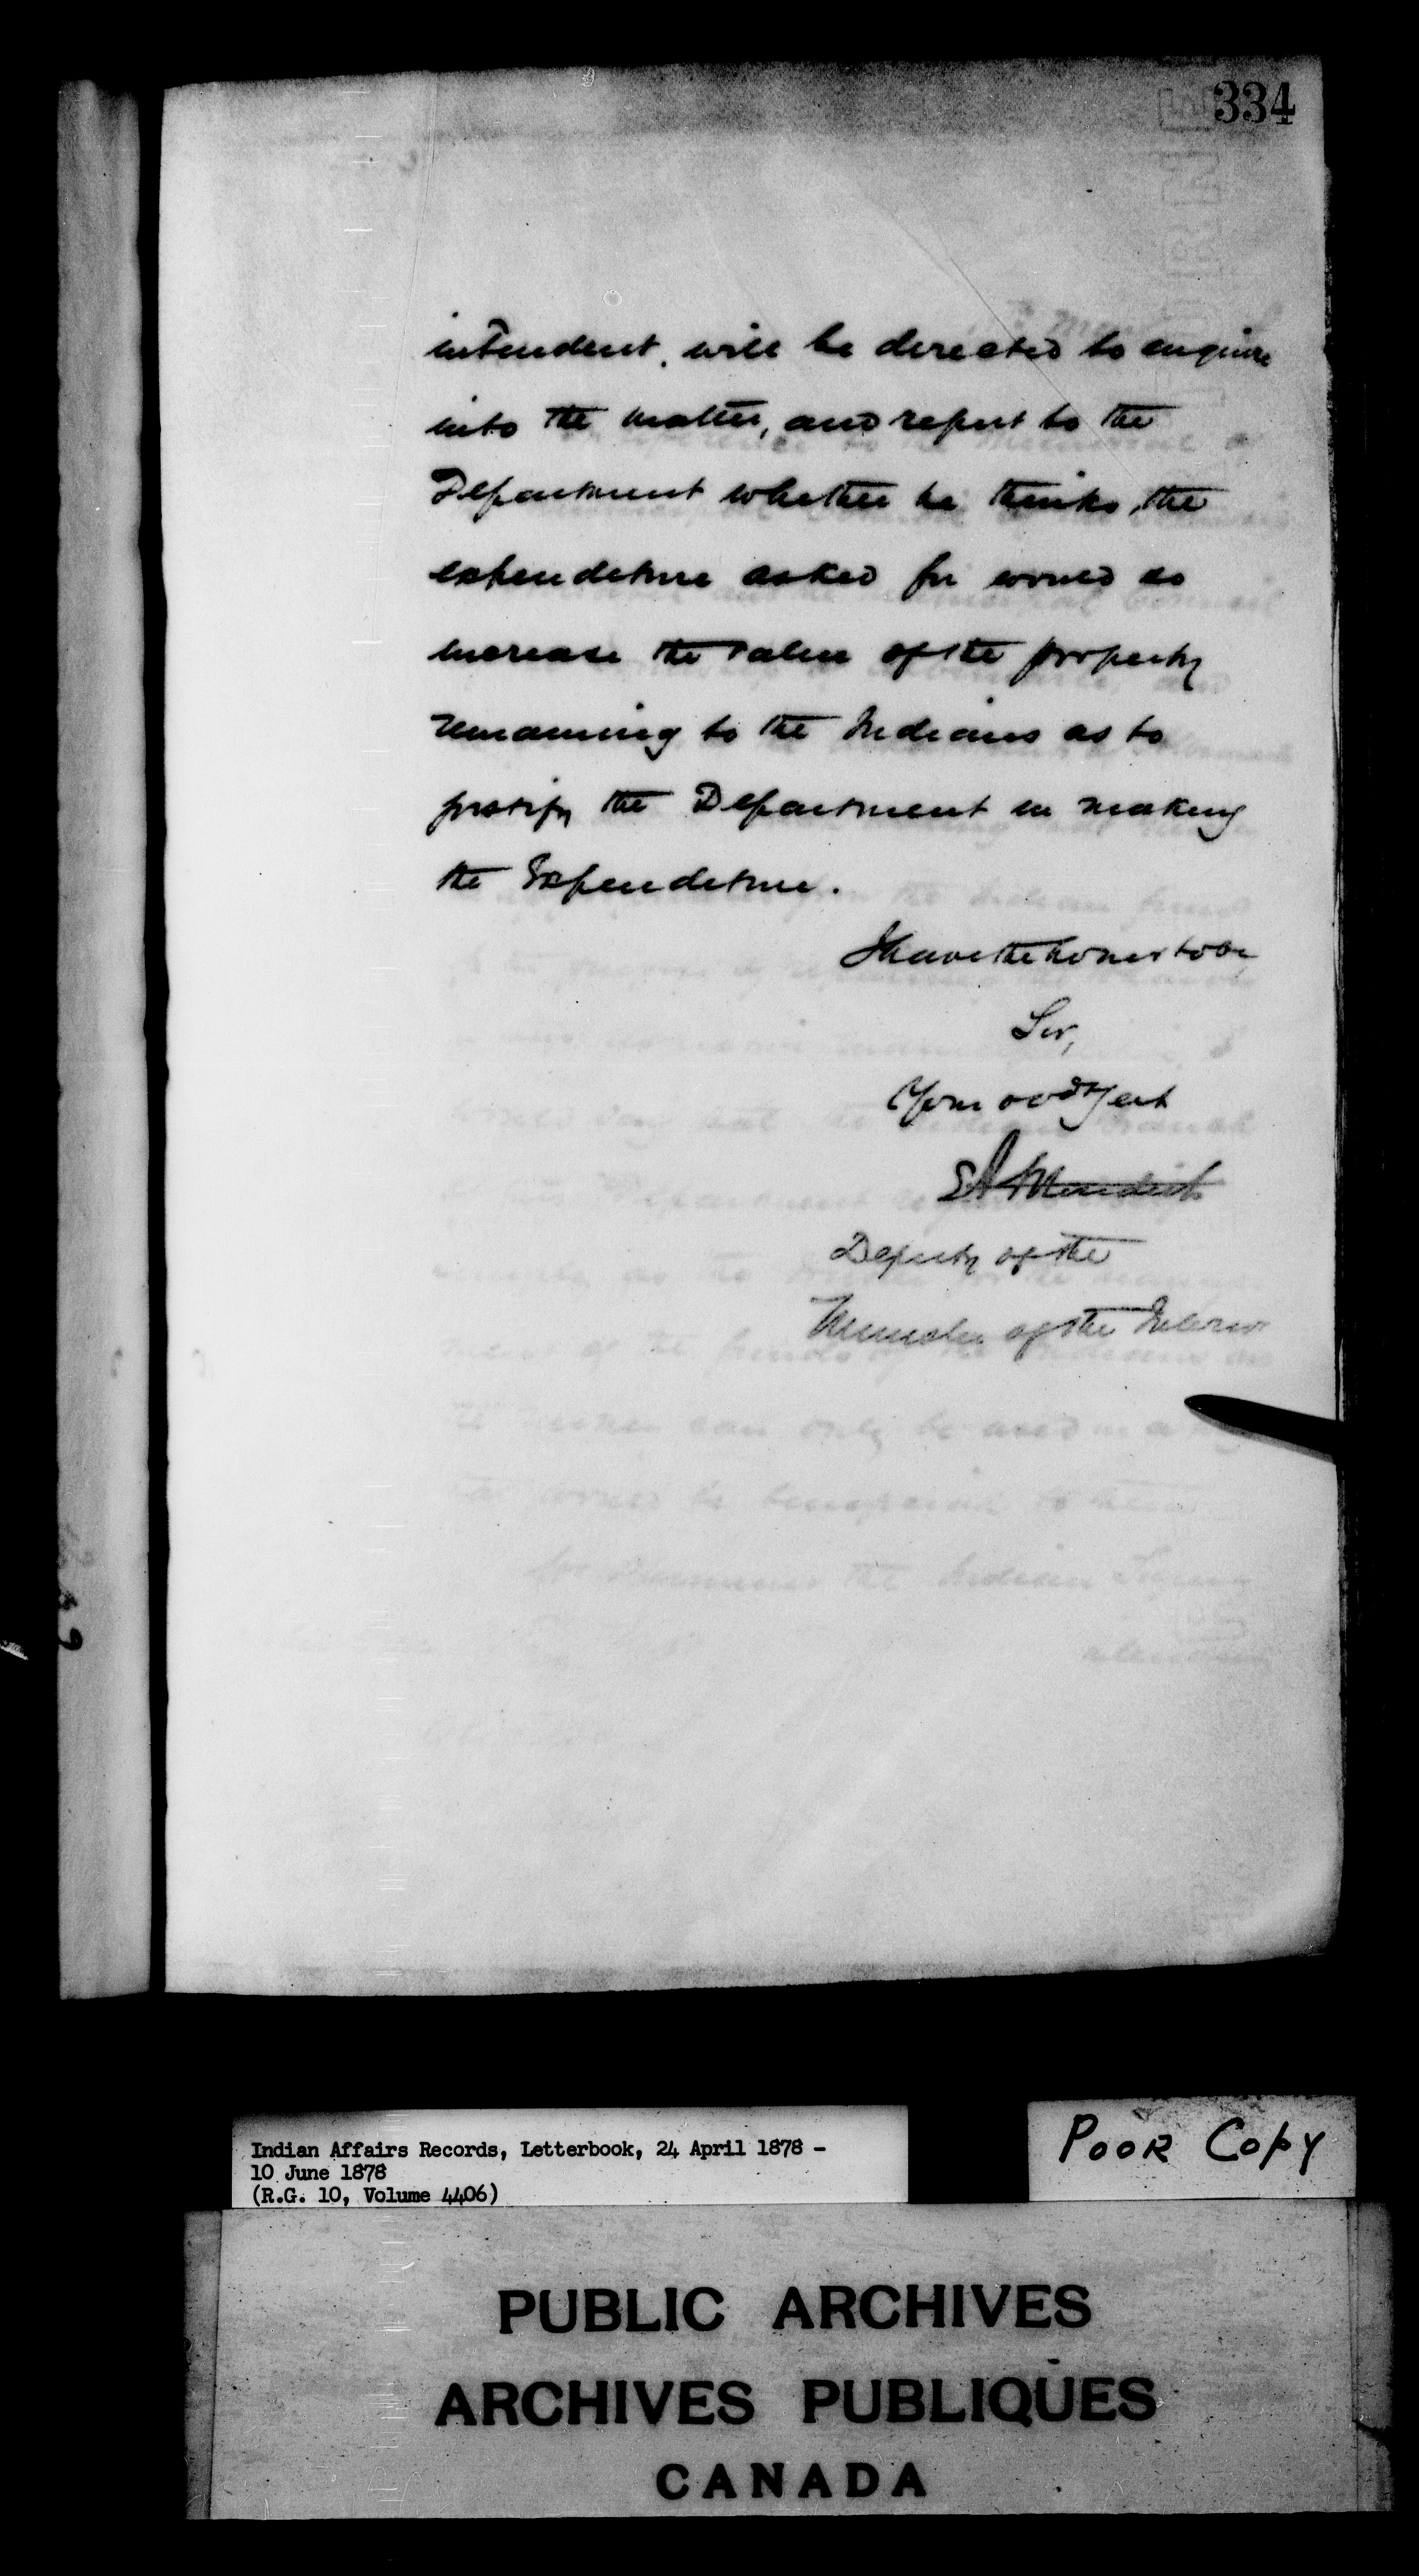 334
intendent, will be directed to enquire
into the matter, and report to the
Department whether he thinks, the
expenditure asked for would so
increase the value of the property
remaining to the Indians as to
justify the Department in making
the Expenditure.
I have the honor to be
Sir,
Your obdt Servt
EA Meredith
Deputy of the
Minister of the Interior
Indian Affairs Records, Letterbook, 24 April 1878 -
10 June 1878
(R.G. 10, Volume 4406)
POOR COPY
PUBLIC ARCHIVES
ARCHIVES PUBLIQUES
CANADA